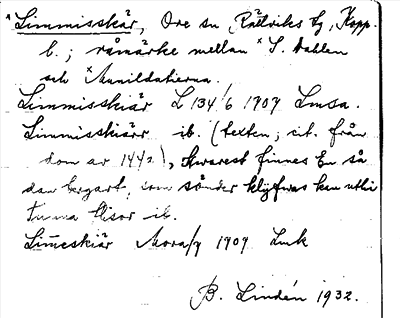 *Limmisskär, Ore sn, Rättviks tg, Kopp.
b.; råmärke mellan *S. Dahlen
och *Annildatierna.
Limmisskiär L 134/6 1707 Lmsa.
Limmisskiärr ib. (texten; cit. från
dom av 1442), hwarest finnes En så
dan bergart, som sönder klyfwas kan uthi
tunna skisor ib.
Lim̄eskiär Mora/9 1709 Lmk
B. Lindén 1932.